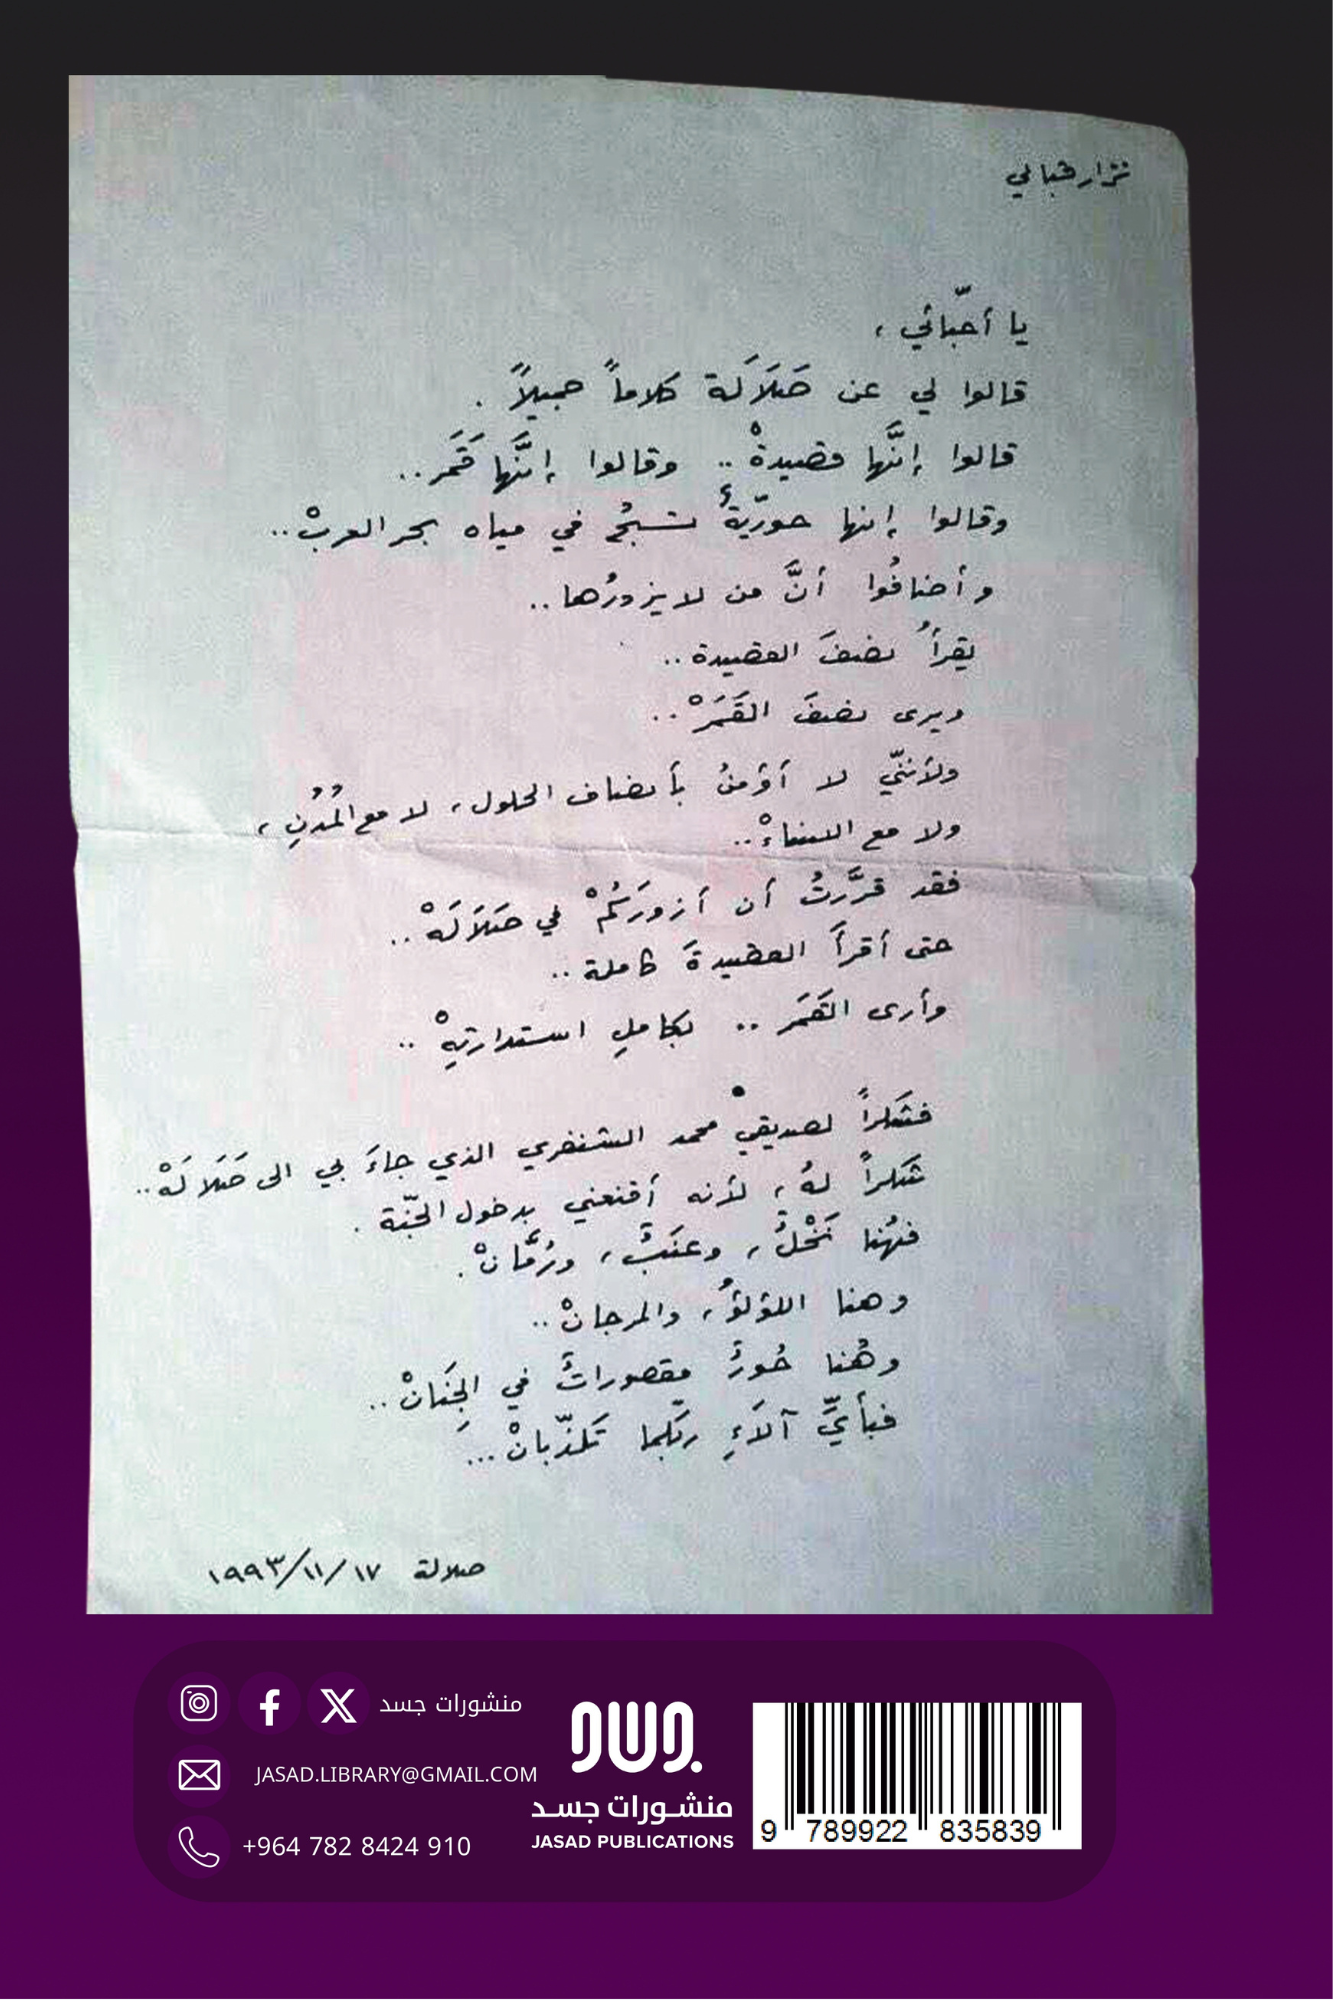 نزار قباني
يا أحبّائي ،
قالوا لي عن صَلَالَة كلاماً جميلاً .
قالوا إنَّها قصيدةْ .. وقالوا إنَّها قَمَر ..
وقالوا إنها حوريّةٌ تسبحُ في مياه بحر العربْ ..
وأضافُوا أنَّ من لا يزورُها ..
يقرأُ نصفَ القصيدة ..
ويرى نصفَ القَمَرْ ..
ولأنّني لا أؤمنُ بأنصاف الحلول ، لا مع المُدُنِ ،
ولا مع النساءْ ..
فقد قرَّرتُ أن أزورَكُمْ في صَلَالَهْ ..
حتى أقرأَ القصيدةَ كاملة ..
وأرى القَمَر .. بكاملِ استدارتِهْ ..
فشكراً لصديقيْ محمد الشنفري الذي جاءَ بي الى صَلَالَهْ ..
شكراً لهُ ، لأنه أقنعني بدخول الجنّة .
فهُنا نَخْلٌ ، وعنَبٌ ، ورُمَّانْ .
وهنا اللؤلؤُ ، والمرجانْ ..
وهُنا حُورٌ مقصوراتٌ في الجِنَانْ ..
فبأيِّ آلاَءِ ربّكما تكذّبانْ ...
صلالة ١٩٩٣/١١/١٧
منشورات جسد
JASAD.LIBRARY@GMAIL.COM
+964 782 8424 910
جسد
منشورات جسد
JASAD PUBLICATIONS
9 789922 835839